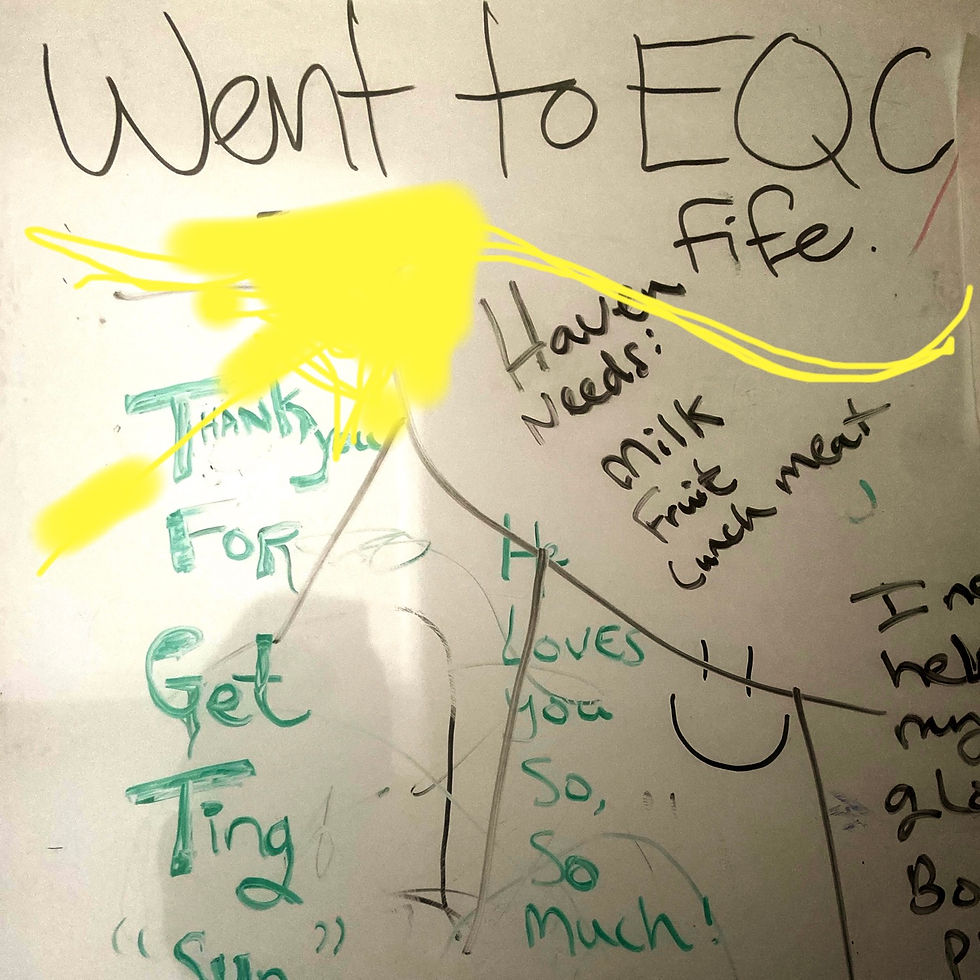 Went to EQC
Fife.
Haven
Needs:
Milk
Fruit
Lunch meat
THANK
you
FOR
Get
Ting
"Sun"
He
Loves
you
So,
So
Much!
I
my
Bo